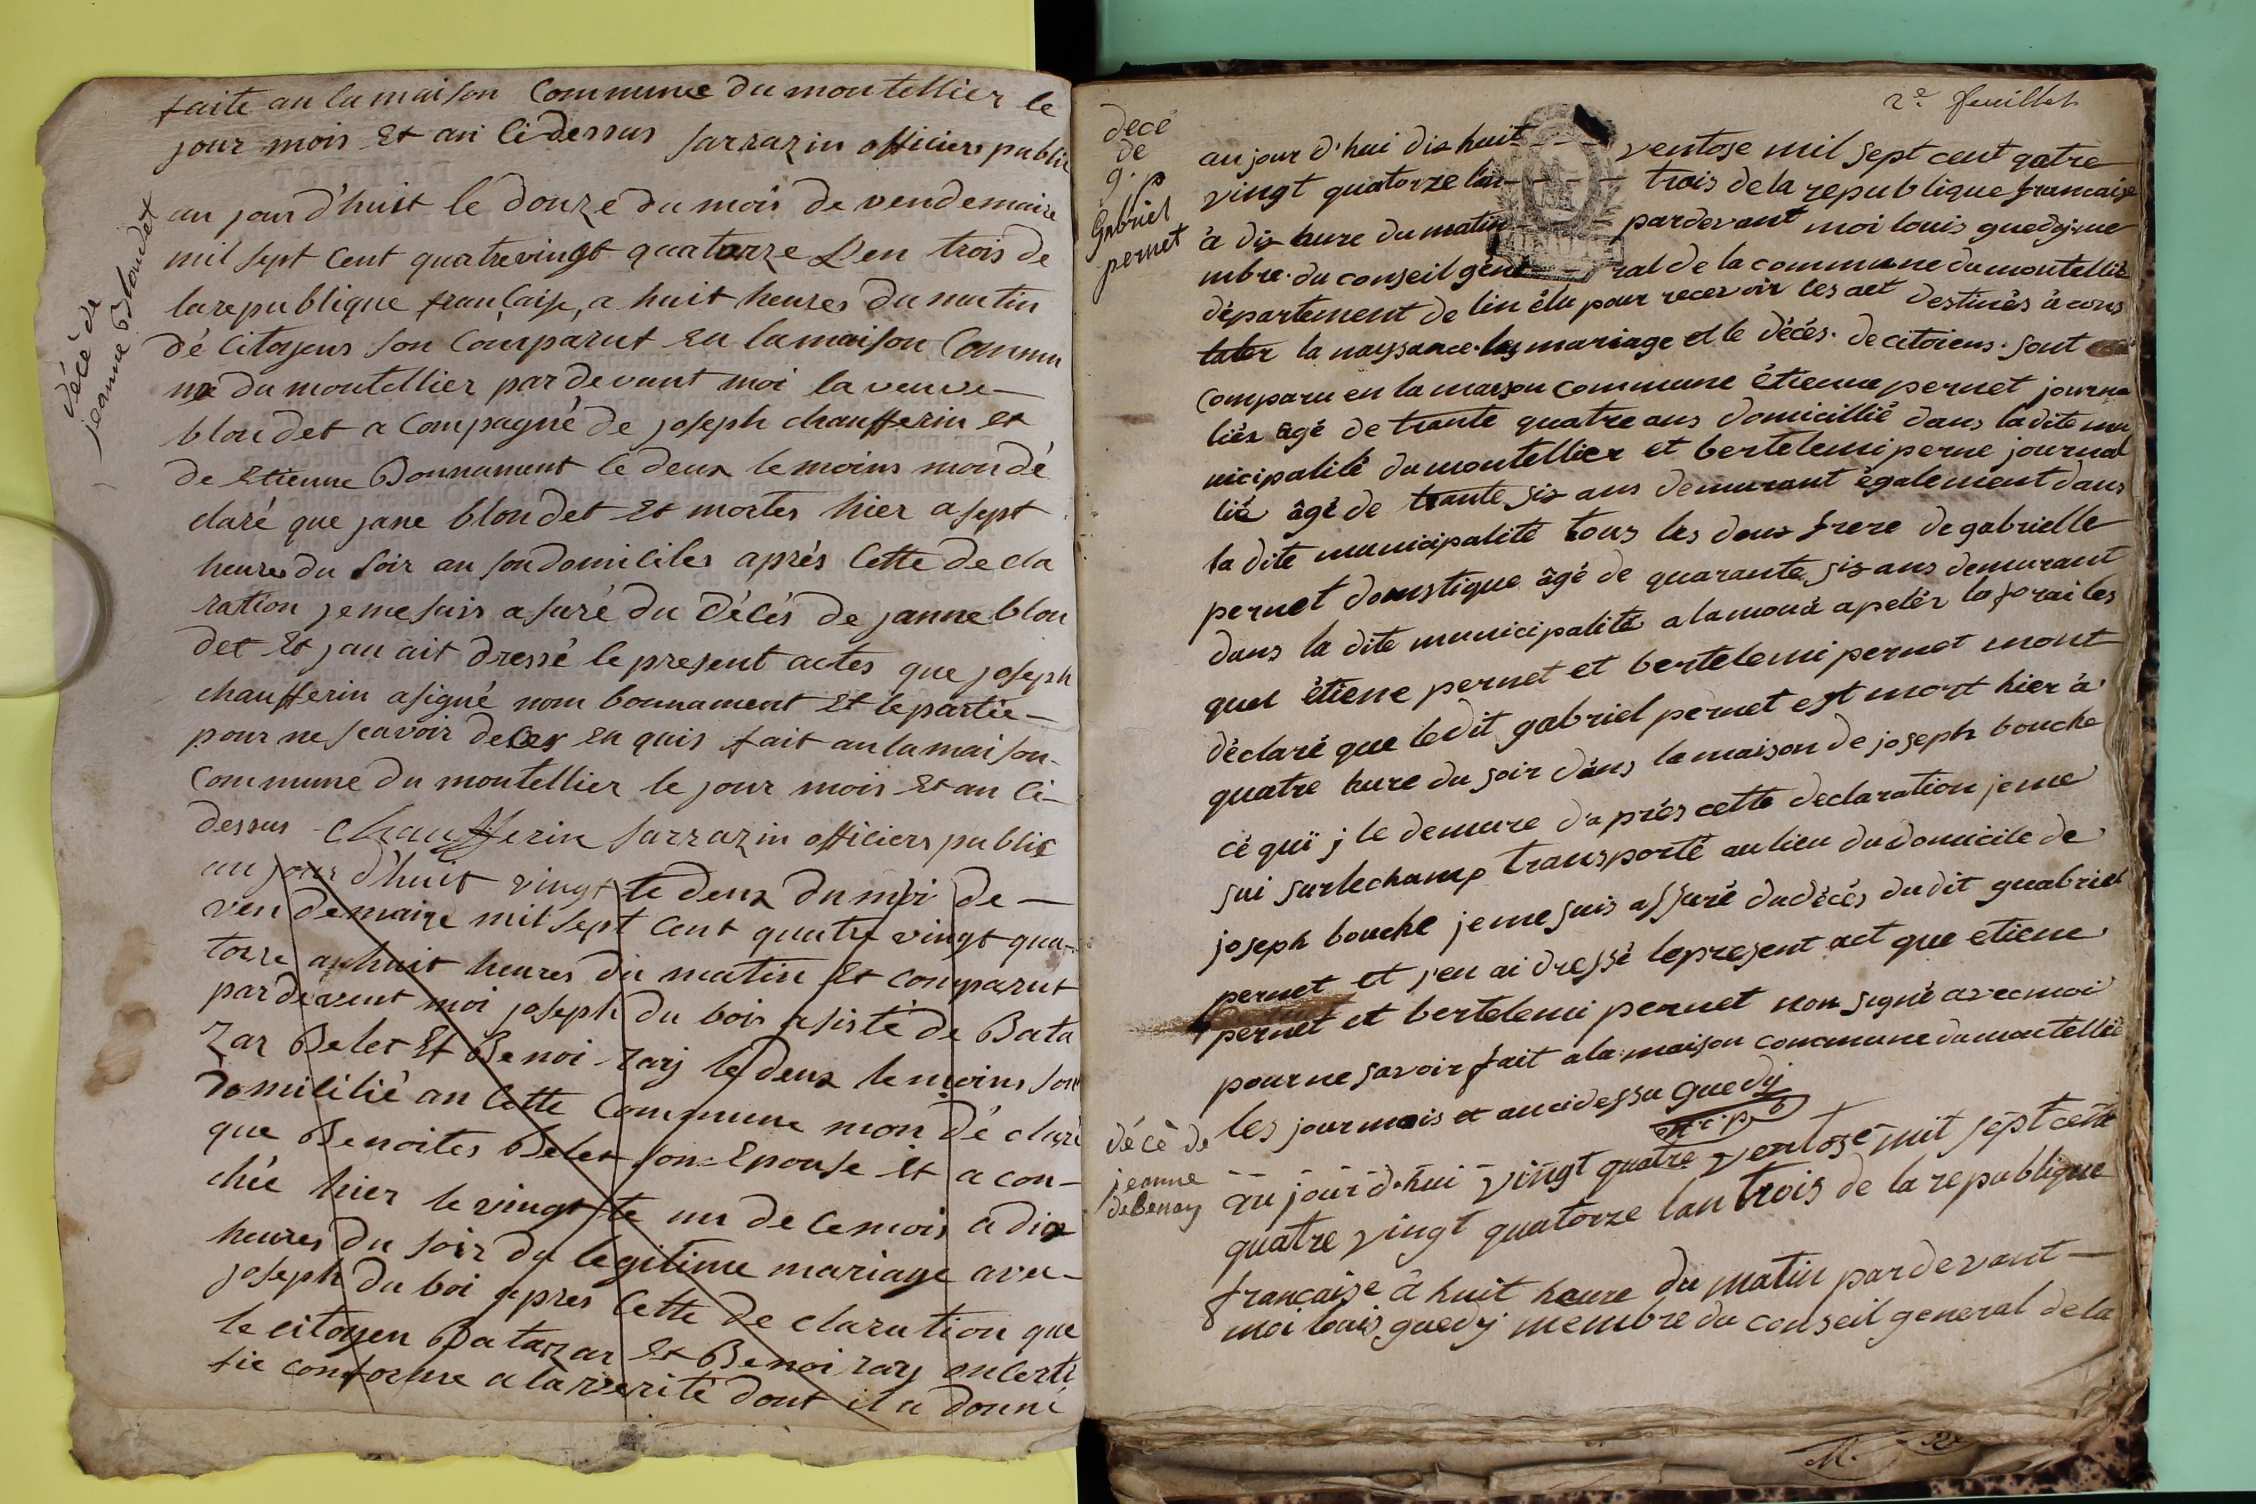 faite an la maison Commune du montellier le
jour mois Et an Cidessus sarrazin officiers public
décé de
jeanne Blondet
au jour d'huit le Donze du mois de vendemaire
mil sept Cent quatrevingt quatorze L'en trois de
la republique francaise, a huit heures du matin
dé Citoyens son Comparut en la maison Commu
ne du montellier par devant moi la veuve
blondet a Compagné de joseph chaufferin et
de Etienne Bonnament le deux temoins mon dé
claré que jane blondet Et mortes hier a sept
heures du soir an son domiciles aprés Cette de cla
ration je me suis a suré du décés de janne blon
det Et jan ait dressé le present actes que joseph
chaufferin a signé nom bonnament Et le partie
pour ne scavoir de en quis fait an la maison
Commune du montellier le jour mois Et an Ci
dessus chaufferin sarrazin officiers public
au jour d'huit vingt te deux du moi de
ven demaire mil sept Cent quatre vingt qua
torze a huit heures du matin Et comparut
par devent moi joseph du bois asisté de Bata
zar Belet Et Benoi ray le deux temoins son
domicilié an Cette Commune mon dé claré
que Benoites Belet son Epouse Et a con
chée hier le vingt te un de ce mois a dix
heures du soir du legitime mariage avec
joseph du boi apres Cette de claration que
le citoyen Batazar Et Benoi ray on Certi
fié conforme a la verité dont il a donné
2e. feuillet
decé
de
g.
Gabriel
pernet
au jour d'hui dix huit ventose mil sept cent qatre
vingt quatorze lan trois de la republique francaise
à dix hure du matin pardevant moi louis guedy me
mbre du conseil géné ral de la commune du montellié
département de lin élu pour recevoir les act destinés à cons
tater la nayssance les mariage et le décés de citoiens sont
comparu en la maison commune étienne pernet journa
liér âgé de trante quatre ans domicillié dans la dite mu
nicipalité du montellier et bertelemi perne journal
lié âgé de trante six ans demurant également dans
la dite municipalité tous les deux frere de gabrielle
pernet domstique âgé de quarante six ans demurant
dans la dite municipalité a la moua apelér la forai les
quel étiene pernet et bertelemi pernet mont
déclaré que ledit gabriel pernet est mort hier à
quatre hure du soir dans la maison de joseph bouche
cé quï j le demure da prés cette declaration je me
sui surlechamp transporté au lieu du domicile de
joseph bouche je me suis assuré du décés du dit guabriel
pernet et j'en ai dressé le present act que etiene
pernet et bertelemi pernet non signé avec moi
pour ne savoir fait a la maison commune du montellié
les jour mois et an cidessu guedy
décè de
jeanne
debenay
au jour d'hui vingt quatre ventose mil sept cent
quatre vingt quatorze lan trois de la republique
francaise à huit heure du matin pardevant
moi louis guedy membre du conseil general de la